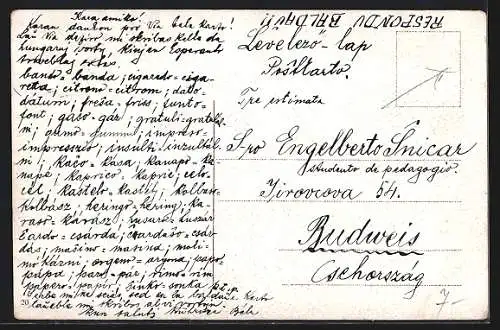 Kara amiko!
Koran dankon pro Via bela karto!
Laŭ Via deziro mi skribas kelke da
hungaraj vortoj kiujn Esperanto
banto = banda; cigaredo = ciga-
retta; citrono = citrom; dato =
dátum; freŝa = friss; funto =
font; gaso = gáz; gratuli = gratulál-
ni; gumo = gummi; impreso =
impresszió; insulti = inzultál-
ni; kaĉo = kása; kanapo = ka-
napé; kaprico = kapric; celo =
cél; kastelo = kastél; kolbaso =
kolbász; heringo = hering; ka-
raso = kárász; husaro = huszár
ĉardo = csárda; ĉardaŝo = csár-
dás; maŝino = masina; muli-
; orgeno = orgona; papo =
pápa; paro = pár; rimo = rím
pipero = papír; ŝinko = sonka
20
kun saluto Béla
RESPONDU BALDAŬ!
Levelező-lap
Poŝtkarto.
Tre estimata
S-ro Engelberto Ŝnicar
studento de pedagogio.
Jirovcova 54.
Budweis
Csehország
7-